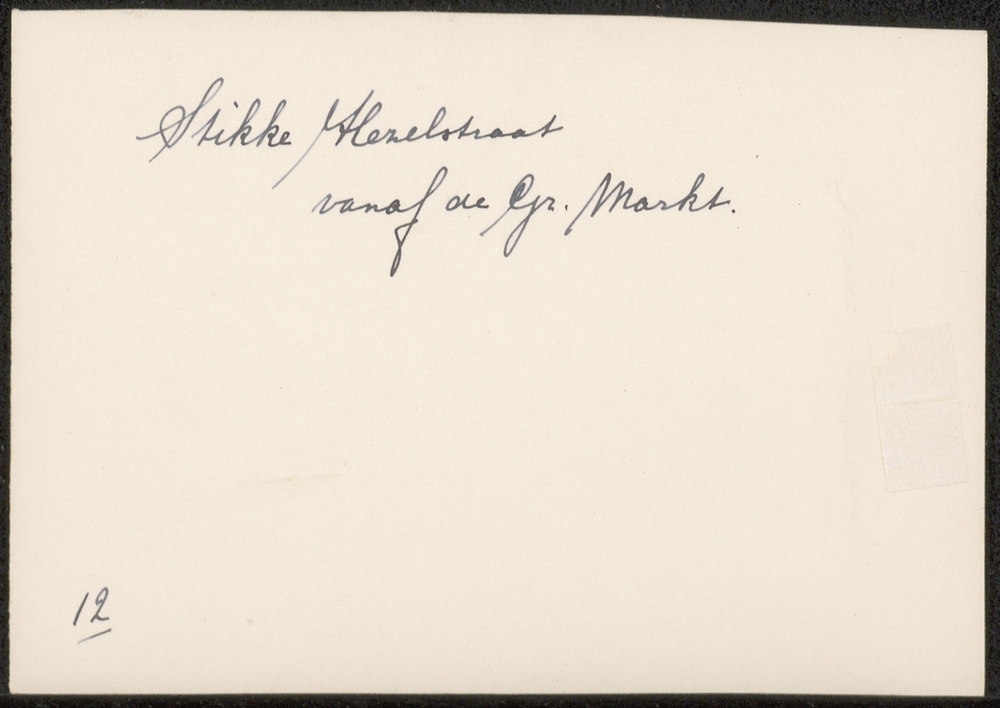 Stikke Hezelstraat
vanaf de Gr. Markt.
12